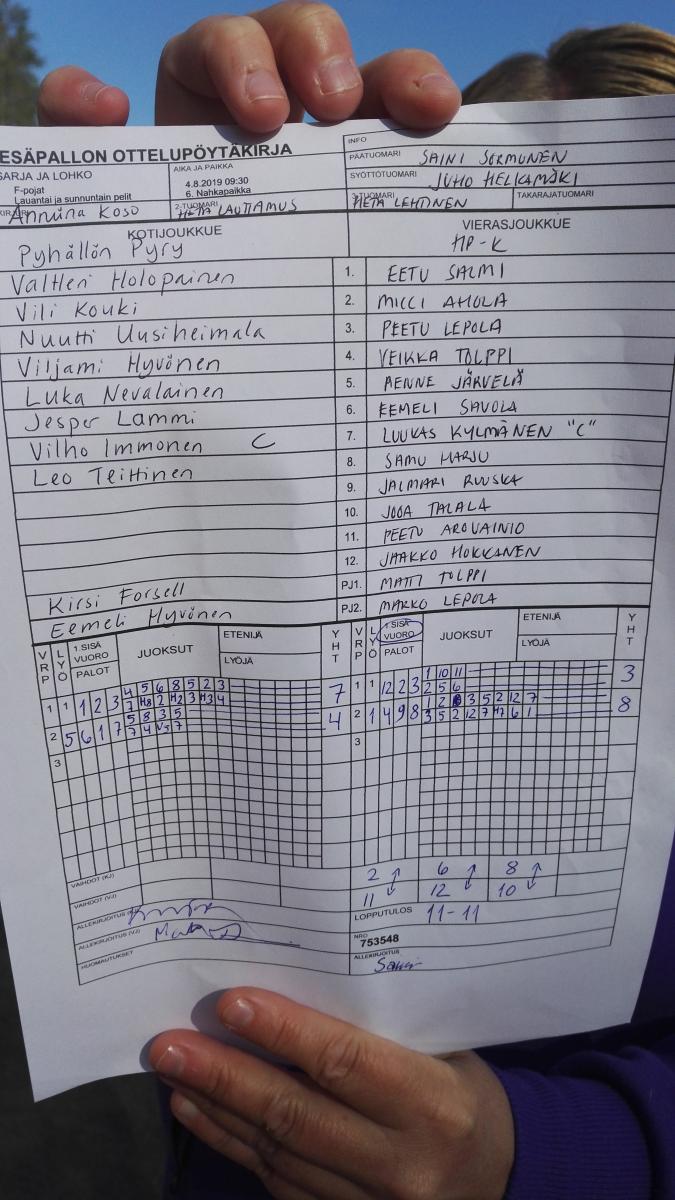 ESÄPALLON OTTELUPÖYTÄKIRJA
INFO
PÄÄTUOMARI SAINI SORMUNEN
SYÖTTÖTUOMARI JUHO HELKAMÄKI
SARJA JA LOHKO
F-pojat
Lauantai ja sunnuntain pelit
AIKA JA PAIKKA
4.8.2019 09:30
6. Nahkapaikka
Anniina Koso
2-TUOMARI HETA LAUTIAMUS
3-TUOMARI HETA LEHTINEN
TAKARAJATUOMARI
KOTIJOUKKUE
Pyhällön Pyry
VIERASJOUKKUE
HP-K
Valtteri Holopainen 1. EETU SALMI
Vili Kouki 2. MICCI AHOLA
Nuutti Uusiheimala 3. PEETU LEPOLA
Viljami Hyvönen 4. VEIKKA TOLPPI
Luka Nevalainen 5. MENNE JÄRVELÄ
Jesper Lammi 6. EEMELI SAVOLA
Vilho Immonen C 7. LUUKAS KYLMÄNEN "C"
Leo Teittinen 8. SAMU HARJU
9. JALMARI RUUSKA
10. JOOA TALALA
11. PEETU AROVAINIO
12. JAAKKO HOKKANEN
Kirsi Forsell PJ1. MATTI TOLPPI
Eemeli Hyvönen PJ2. MARKO LEPOLA
VRP LYÖ 1.SISÄ VUORO PALOT JUOKSUT ETENIJÄ LYÖJÄ YHT
VRP LYÖ 1.SISÄ VUORO PALOT JUOKSUT ETENIJÄ LYÖJÄ YHT
4 5 6 8 5 2 3
1 1 1 2 3 7 H2 2 H2 3 H3 4 7
5 8 3 5
2 5 6 1 7 7 4 V5 7 4
3
1 10 11
1 1 12 2 3 2 5 6 3
2 3 5 2 12 7
2 1 4 9 8 3 5 2 12 7 H7 6 1 8
3
VAIHDOT (KJ)
VAIHDOT (VJ)
2 ↑ 6 ↑ 8 ↑
11 ↓ 12 ↓ 10 ↓
ALLEKIRJOITUS (KJ)
ALLEKIRJOITUS (VJ)
HUOMAUTUKSET
LOPPUTULOS 11-11
NRO
753548
ALLEKIRJOITUS